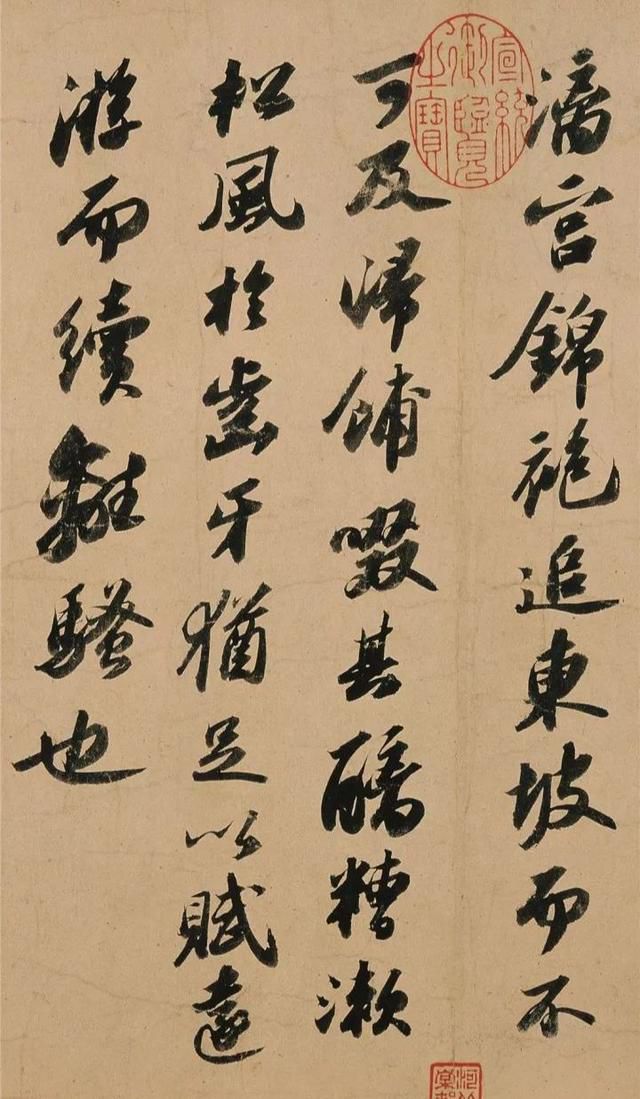 漓宮錦袍追東坡而不
可及歸餔啜其醨糟漱
松風於齒牙猶足以賦遠
游而續離騷也
宣統御覽之寶